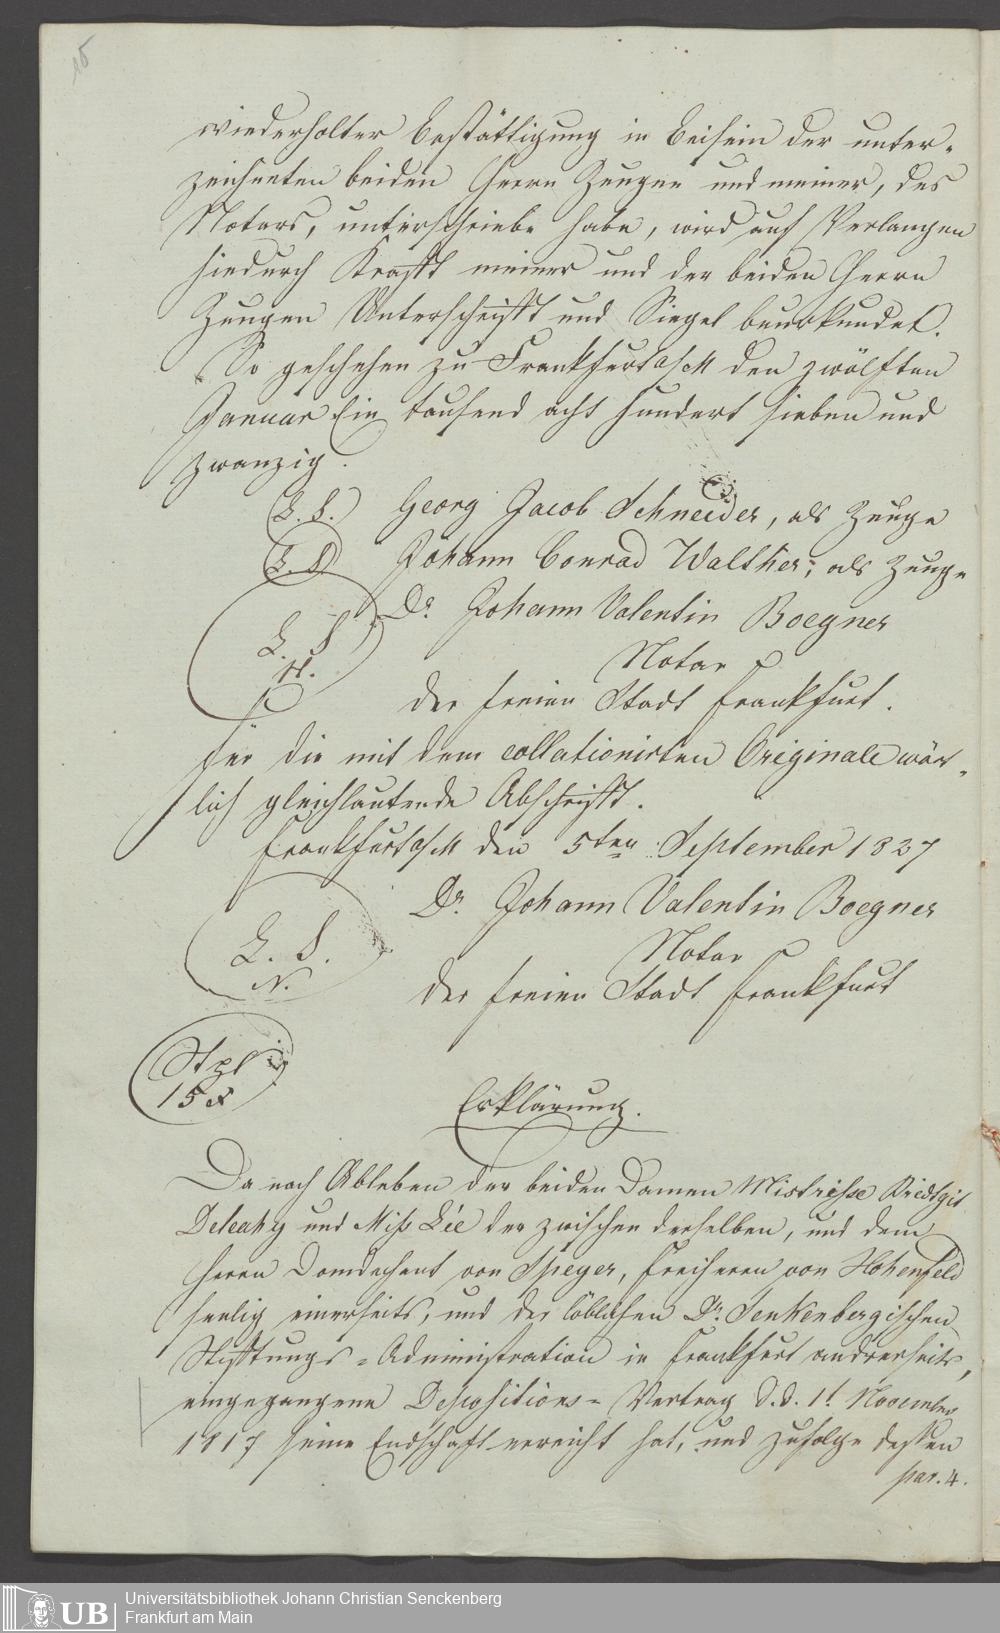 15
wiederholter Bestättigung in Beisein der unter-
zeichneten beiden Herrn Zeugen und meiner, des
Notars, unterschrieben habe, wird auf Verlangen
hiedurch Krafft meiner und der beiden Herrn
Zeugen Unterschrifft und Siegel beurkundet.
So geschehen zu Frankfurt a/M den zwölften
Januar Ein tausend acht hundert sieben und
zwanzig.
L. S. Georg Jacob Schneider, als Zeuge
L. S. Johann Conrad Walther, als Zeuge
L. S. Dr. Johann Valentin Boegner
N. Notar
der freien Stadt Frankfurt.
Für die mit dem collationirten Originale wört-
lich gleichlautende Abschrifft.
Frankfurt a/M den 5ten September 1827
Dr. Johann Valentin Boegner
L. S. Notar
N. der freien Stadt Frankfurt
Stpl
15 x
Erklärung.
Da nach Ableben der beiden Damen Mistresse Bridtgit
Deleahy und Miss Lée der zwischen derselben, und dem
Herrn Domdechant von Speyer, Freiherrn von Hohenfeld
seelig einerseits, und der löblichen Dr. Senkenbergischen
Stifftungs-Administration in Frankfurt andrerseits,
eingegangene Depositions-Vertrag d. d. 1t. November
1817 seine Endschaft erreicht hat, und zufolge dessen
par. 4.
Universitätsbibliothek Johann Christian Senckenberg
Frankfurt am Main
UB